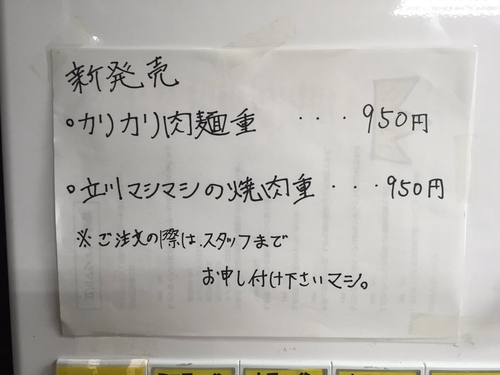 新発売
○カリカリ肉麺重 ・・・ 950円
○立川マシマシの焼肉重 ・・・ 950円
※ご注文の際は、スタッフまで
お申し付け下さいマシ。